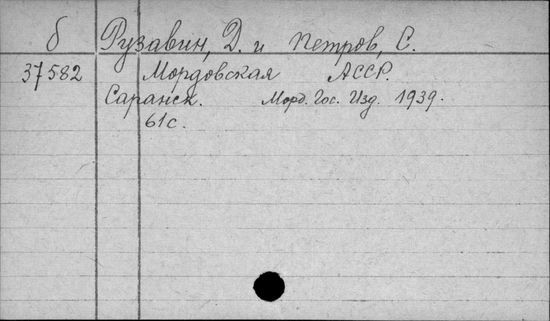 б Рузавин, Д. и Петров, С.
37582 Мордовская АССР.
Саранск. Морд. Гос. Изд. 1939.
61 с.